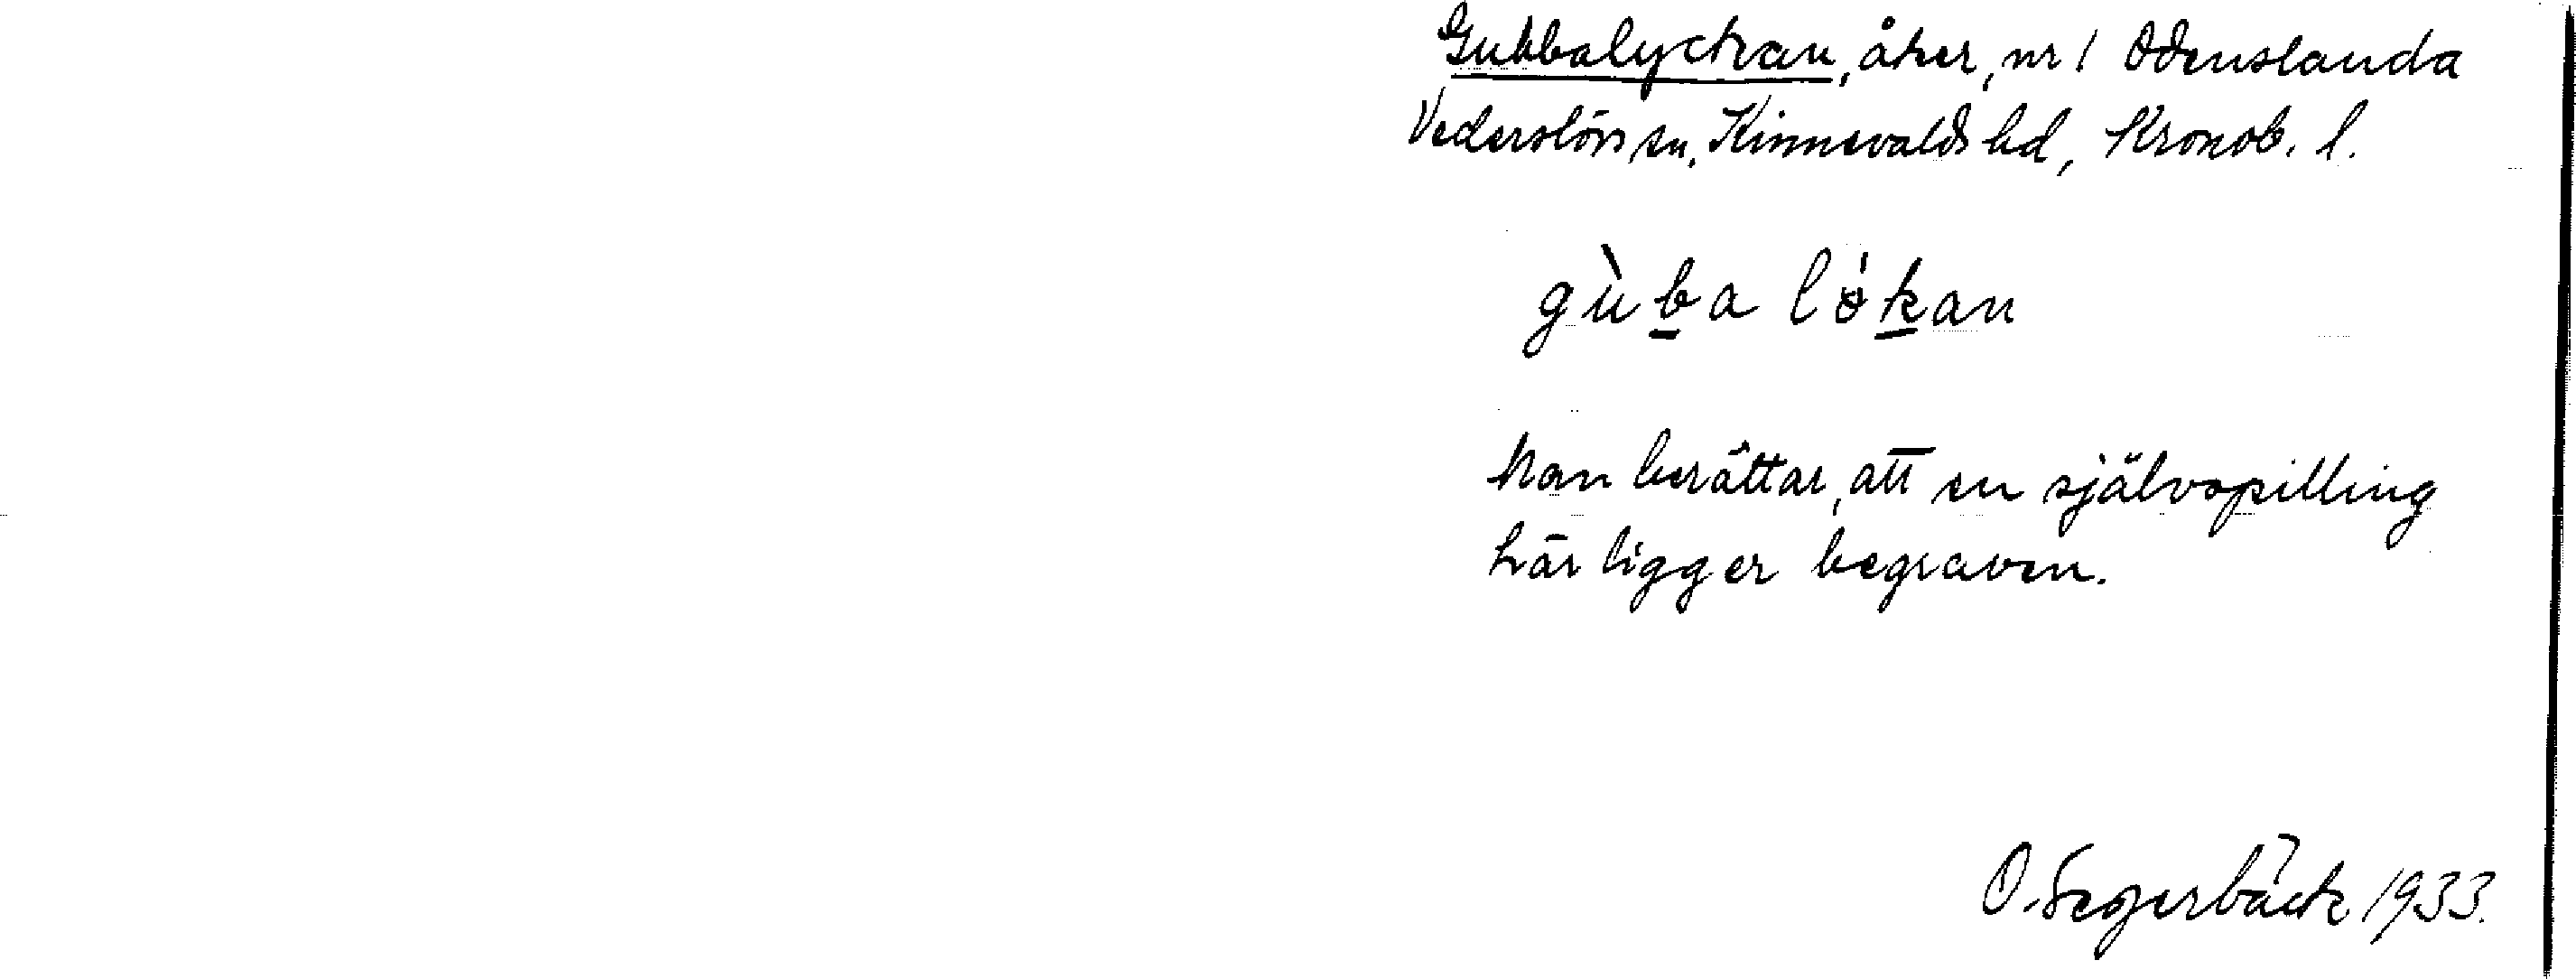 Gubbalyckan, åker, nr 1 Odenslanda
Vederslövs sn, Kinnevalds hd, Kronob. l.
gùba lókan
Man berättar, att en självspilling
här ligger begraven.
O. Segerbäck 1933.